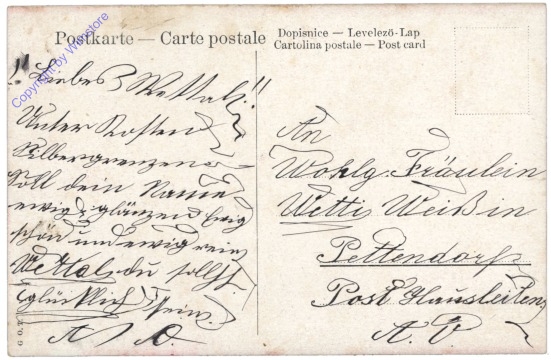 Postkarte — Carte postale
Dopisnice — Levelező-Lap
Cartolina postale — Post card
Copyright by Wanstore
!! Liebes Wettal!!
Unter Rosen
Silbergrenzen
Soll dein Name
ewig glänzen Ewig
schön und ewig rein
Wettal du sollst
glücklich sein.
An
Wohlg. Fräulein
Wetti Weiß in
Pettendorf
Post Hausleiten
N. Ö.